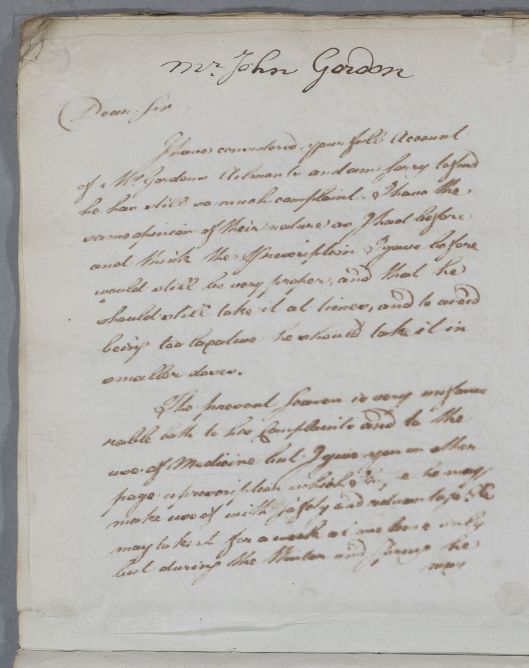 Mr. John Gordon
Dear Sir
I have considered your full Account
of Mr. Gordons Ailments and am sorry to find
he has still so much complaint. I have the
same opinion of their nature as I had before
and think the Prescription I gave before
would still be very proper, and that he
should still take it at times, and to avoid
being too laxative he should take it in
smaller doses.
The present Season is very unfavou
rable both to his Complaints and to the
use of Medicine but I give you on other
page a prescription which he may
make use of with safety and advantage. He
may take it for a week at a time only
but during the Winter and Spring he
may